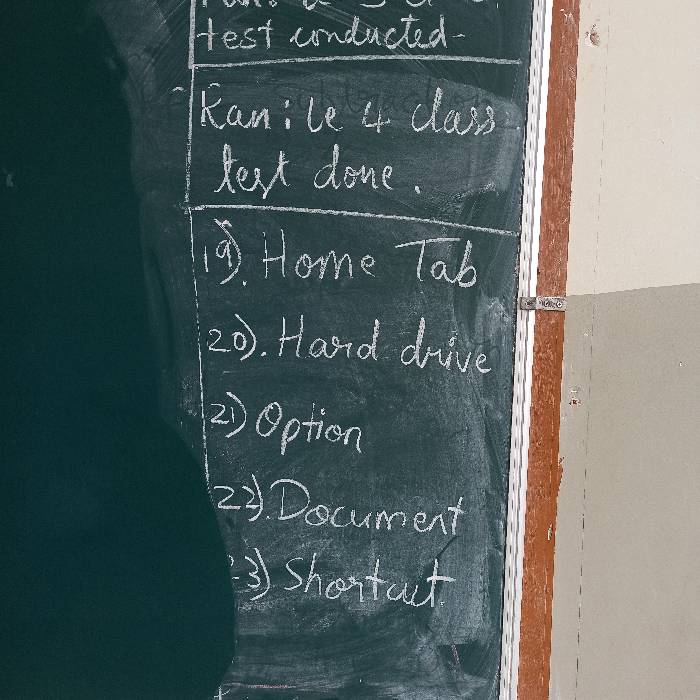 test conducted-
Kan: Le 4 class
test done.
19). Home Tab
20). Hard drive
21) Option
22). Document
23) Shortcut.